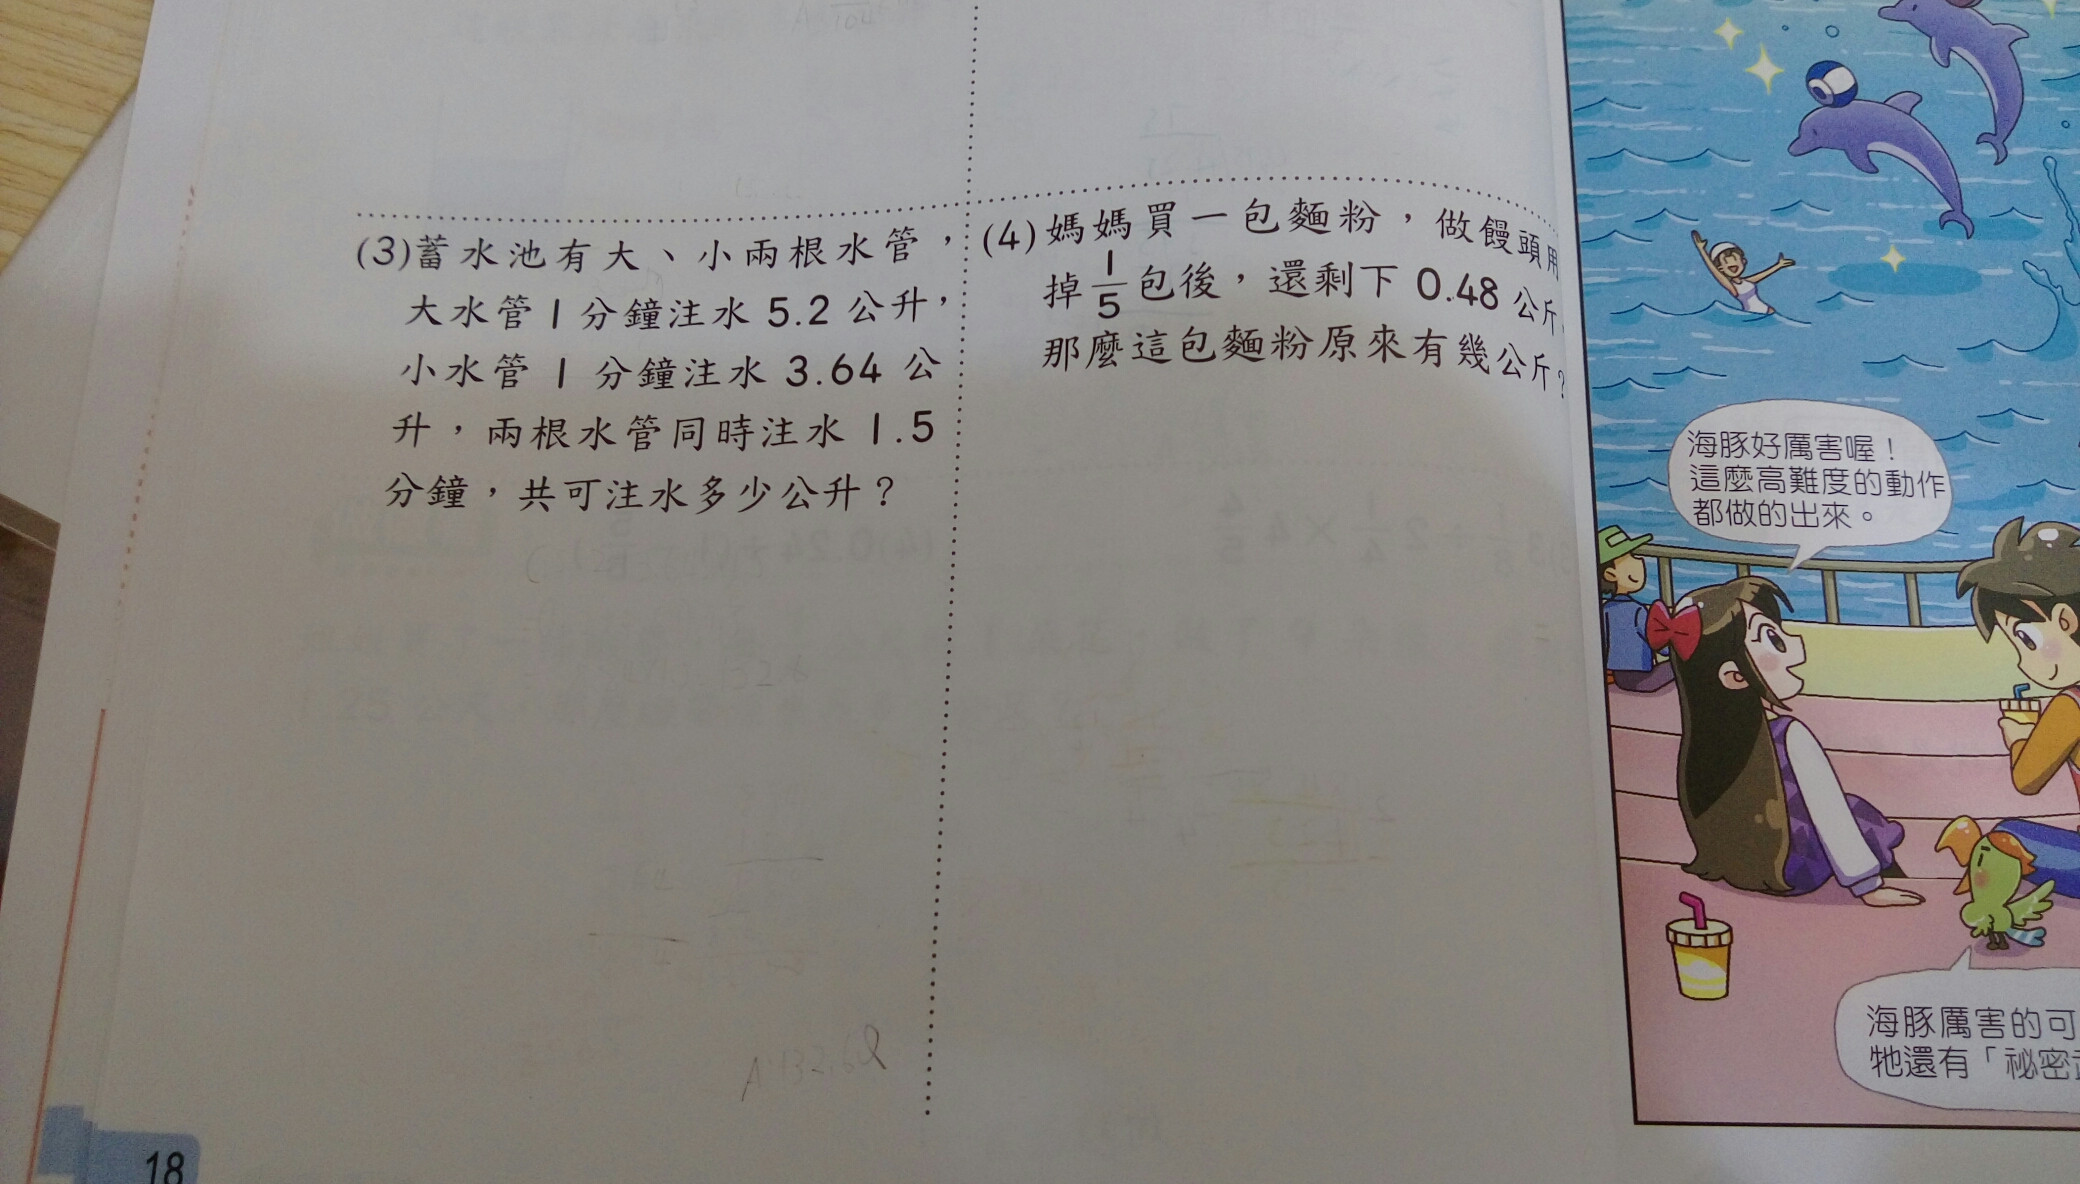 (3)蓄水池有大、小兩根水管，
大水管1分鐘注水5.2公升，
小水管1分鐘注水3.64公
升，兩根水管同時注水1.5
分鐘，共可注水多少公升？
(4)媽媽買一包麵粉，做饅頭用
掉1/5包後，還剩下0.48公斤，
那麼這包麵粉原來有幾公斤？
海豚好厲害喔！
這麼高難度的動作
都做的出來。
海豚厲害的可
牠還有「祕密
18